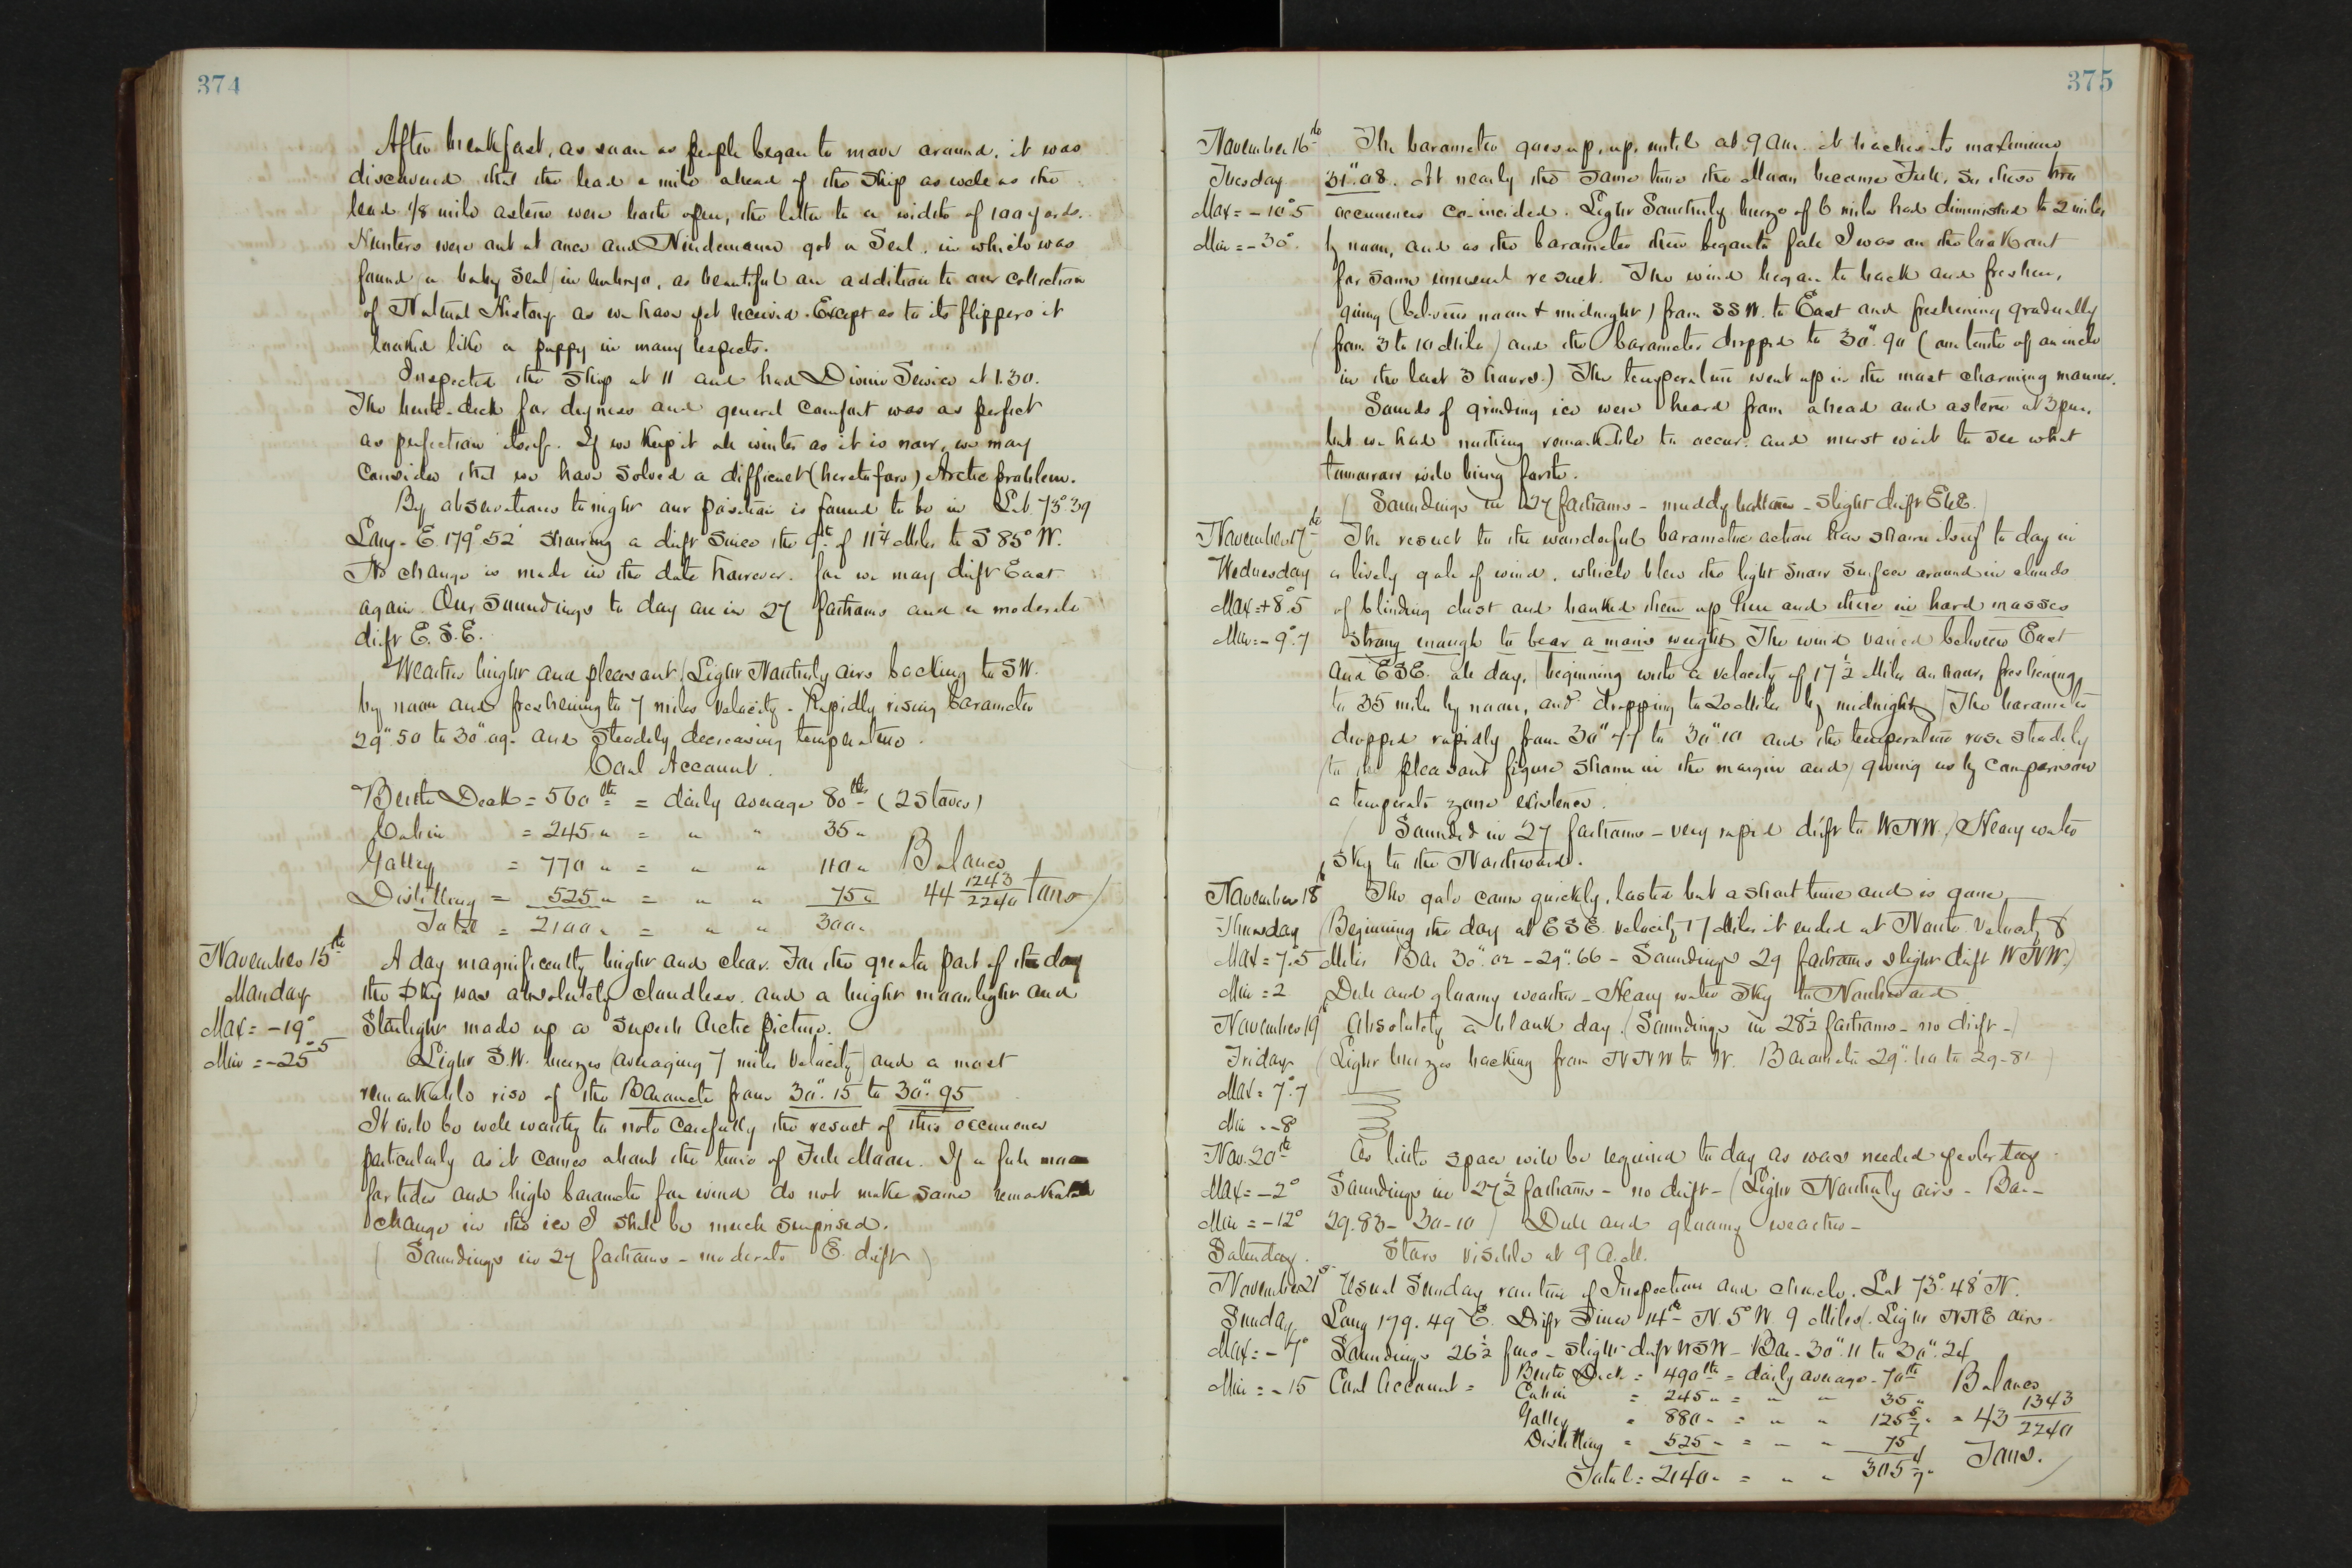 374
After breakfast, as soon as people began to move around, it was
discovered that the lead a mile ahead of the ship as well as the
lead 1/8 mile astern were both open, the latter to a width of 100 yards.
Hunters were out at once and Nindemann got a Seal, in which was
found (a baby seal) in embryo, as beautiful an addition to our collection
of Natural History as we have yet received. Except as to its flippers it
looked like a puppy in many respects.
Inspected the ship at 11 and had Divine Service at 1.30.
The berth-deck for dryness and general comfort was as perfect
as perfection itself. If we keep it all winter as it is now, we may
consider that we have solved a difficult (heretofore) Arctic problem.
By observations tonight our position is found to be in Lat. 73°.39
Long. E. 179°.52' showing a drift since the 9th of 11¼ Miles to S 85° W.
No change is made in the date however, for we may drift East
again. Our soundings to day are in 27 fathoms and a moderate
drift E.S.E.
Weather bright and pleasant. (Light Northerly airs backing to SW.
by noon and freshening to 7 miles velocity. Rapidly rising barometer
29".50 to 30".09. and steadily decreasing temperature.
Coal Account.
Berth Deck = 560 lbs = daily average 80 lbs (2 Stoves)
Cabin = 245 " = " " 35 "
Galley = 770 " = " " 110 " Balance
Distilling = 525 " = " " 75 " 44 1243/2240 tons)
Total = 2100 " = " " 300 "
November 15th A day magnificently bright and clear. For the greater part of the day
Monday the sky was absolutely cloudless, and a bright moonlight and
Max = -19° Starlight made up a superb Arctic picture.
Min = -25°.5 Light S.W. breezes (averaging 7 miles velocity) and a most
remarkable rise of the Barometer from 30".15 to 30".95
It will be well worthy to note carefully the result of this occurrence
particularly as it comes about the time of Full Moon. If a full moon
for tides and high barometer for wind do not make some remarkable
change in the ice I shall be much surprised.
(Soundings in 27 fathoms - moderate E. drift)
375
November 16th The barometer goes up, up, until at 9 am. it reaches its maximum
Tuesday 31".08. At nearly the same time the Moon became Full, so these two
Max = -10°.5 occurrences co-incided. Light Southerly breeze of 6 miles had diminished to 2 miles
Min = -30°. by noon, and as the barometer then began to fall I was on the lookout
for some unusual result. The wind began to back and freshen,
going (between noon & midnight) from SSW. to East and freshening gradually
(from 3 to 10 Miles) and the barometer dropped to 30".90 (one tenth of an inch
in the last 3 hours.) The temperature went up in the most charming manner.
Sounds of grinding ice were heard from ahead and astern at 3 p.m.
but we had nothing remarkable to occur, and must wait to see what
tomorrow will bring forth.
(Soundings in 27 fathoms - muddy bottom - slight drift EbE.)
November 17th The result to the wonderful barometric action has shown itself to day in
Wednesday a lively gale of wind, which blew the light snow surface around in clouds
Max = +8°.5 of blinding dust and banked them up here and there in hard masses
Min = -9°.7 strong enough to bear a man's weight. The wind varied between East
and ESE. all day, (beginning with a velocity of 17½ Miles an hour, freshening
to 35 miles by noon, and dropping to 20 Miles by midnight) (The barometer
dropped rapidly from 30".77 to 30".10 and the temperature rose steadily
(to the pleasant figure shown in the margin and) giving us by comparison
a temperate zone existence.
(Sounded in 27 fathoms - very rapid drift to WNW.) Heavy water
sky to the Northward.
November 18th The gale came quickly, lasted but a short time and is gone.
Thursday (Beginning the day at ESE. velocity 17 Miles it ended at North velocity 8
Max = 7°.5 Miles Bar 30".02 - 29".66 - Soundings 29 fathoms slight drift WNW.)
Min = 2 Dull and gloomy weather - Heavy water sky to Northward
November 19 Absolutely a blank day. (Soundings in 28½ fathoms - no drift -)
Friday (Light breezes backing from NNW to W. Barometer 29".60 to 29-81)
Max = 7°.7
Min = -8
Nov. 20th As little space will be required to day as was needed yesterday.
Max = -2° Soundings in 27½ fathoms - no drift - (Light Northerly airs - Bar -
Min = -12° 29.83 - 30-10) Dull and gloomy weather -
Saturday. Stars visible at 9 A.M.
November 21st Usual Sunday routine of Inspection and church. Lat 73°.48' N.
Sunday Long 179.49 E. Drift since 14th - N. 5° W. 9 Miles. Light NNE airs.
Max = -7° Soundings 26½ fms - slight drift WSW - Bar - 30".11 to 30".24
Min = -15 Coal Account = Berth Deck = 490 lbs = daily average - 70 lbs Balance
Cabin = 245 " = " " 35 "
Galley = 880 " = " " 125 5/7 " = 43 1343/2240
Distilling = 525 " = " " 75
Total = 2140 " = " " 305 5/7 " Tons.)